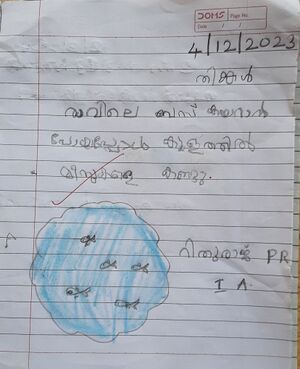 DOMS Page No.
Date / /
4/12/2023
തിങ്കൾ
രാവിലെ ബസ് കയറാൻ
പോയപ്പോൾ കുളത്തിൽ
മീനുകളെ കണ്ടു.
റിതുരാജ് PR
I A